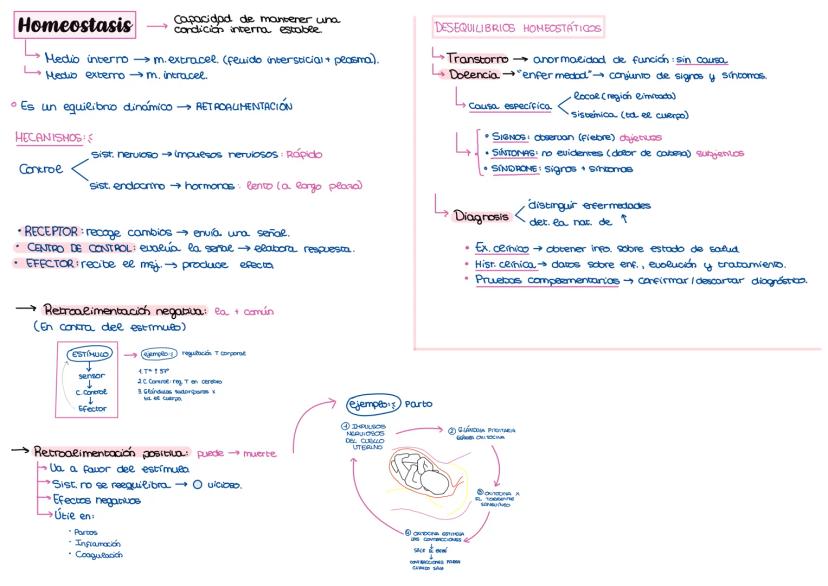 Homeostasis → Capacidad de mantener una
condición interna estable.
Medio interno → m. extracel. (fluido intersticial + plasma).
Medio externo → m. intracel.
Es un equilibrio dinámico → RETROALIMENTACIÓN
MECANISMOS:
Control
sist. nervioso → impulsos nerviosos: Rápido
sist. endocrino → hormonas: lento (a largo plazo)
• RECEPTOR: recoge cambios → envía una señal.
• CENTRO DE CONTROL: evalúa la señal → elabora respuesta.
• EFECTOR: recibe el msj. → produce efecto
→ Retroalimentación negativa: la + común
(En contra del estímulo)
ESTÍMULO → ejemplo: regulación T corporal
sensor
C. Control
Efector
1. Tª ↑ 37º
2. C. Control: reg. T en cerebro
3. Glándulas sudoríparas x
td. el cuerpo.
→ Retroalimentación positiva: puede → muerte
Va a favor del estímulo
Sist. no se reequilibra → O vicioso.
Efectos negativos
Útil en:
• Partos
• Inflamación
• Coagulación
ejemplo: Parto
① IMPULSOS
NERVIOSOS
DEL CUELLO
UTERINO
② GLÁNDULA PITUITARIA
LIBERA OXITOCINA
③ OXITOCINA X
EL TORRENTE
SANGUÍNEO
④ OXITOCINA ESTIMULA
LAS CONTRACCIONES
SALE EL BEBÉ
CONTRACCIONES PARAN
CUANDO SALE
DESEQUILIBRIOS HOMEOSTÁTICOS
Transtorno → anormalidad de función: sin causa
Dolencia → "enfermedad" → conjunto de signos y síntomas.
Causa específica
local (región limitada)
sistémica (td. el cuerpo)
• SIGNOS: observan (fiebre) objetivos
• SÍNTOMAS: no evidentes (dolor de cabeza) subjetivos
• SÍNDROME: signos + síntomas
Diagnosis
distinguir enfermedades
det. la nat. de ↑
• Ex. clínico → obtener info. sobre estado de salud
• Hist. clínica → datos sobre enf., evolución y tratamiento.
• Pruebas complementarias → confirmar/descartar diagnóstico.